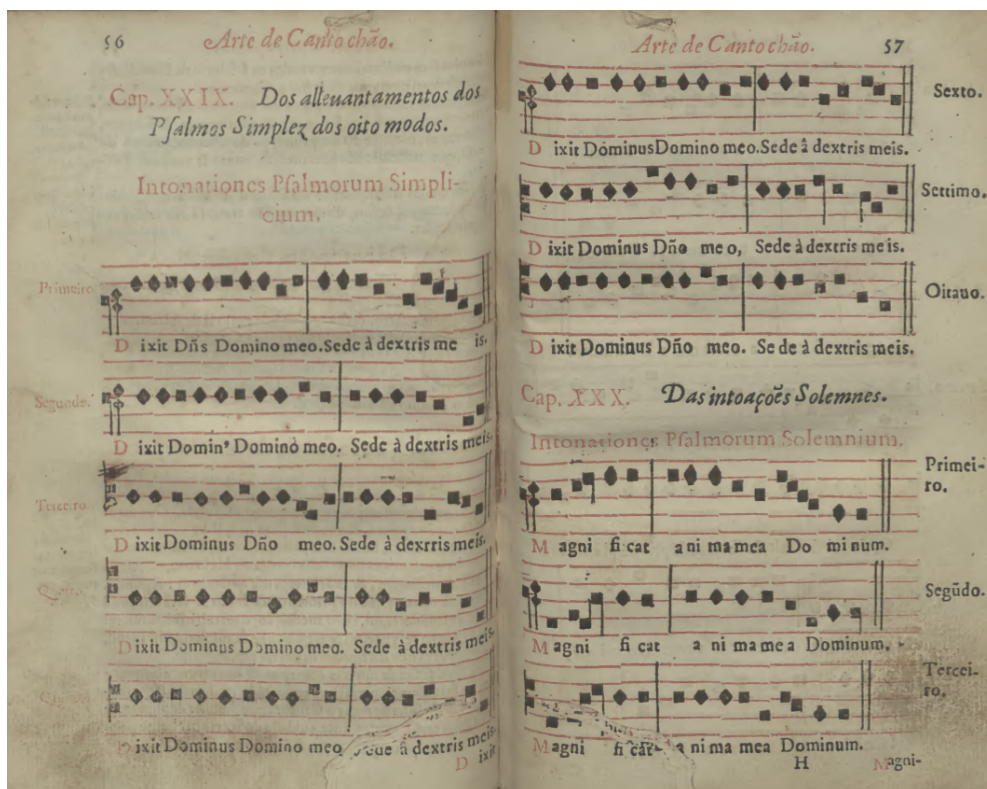 56
Arte de Canto chão.
Cap. XXIX. Dos alleuantamentos dos
Psalmos Simplez dos oito modos.
Intonationes Psalmorum Simpli-
cium.
Primeiro
D ixit Dñs Domino meo. Sede à dextris me is.
Segundo.
D ixit Domin' Domino meo. Sede à dextris meis.
Terceiro.
D ixit Dominus Dño meo. Sede à dexrris meis.
D ixit Dominus Domino meo. Sede à dextris meis.
D ixit Dominus Domino meo Sede â dextris meis
D ixit
Arte de Canto chão.
57
Sexto.
D ixit Dominus Domino meo. Sede â dextris meis.
Settimo.
D ixit Dominus Dño me o, Sede à dextris me is.
Oitauo.
D ixit Dominus Dño meo. Se de à dextris meis.
Cap. XXX. Das intoações Solemnes.
Intonationes Psalmorum Solemnium.
Primei-
ro.
M agni fi cat a ni ma mea Do mi num.
Segũdo.
M ag ni fi cat a ni ma me a Dominum.
Tercei-
ro.
M agni fi cat a ni ma mea Dominum.
H
Magni-